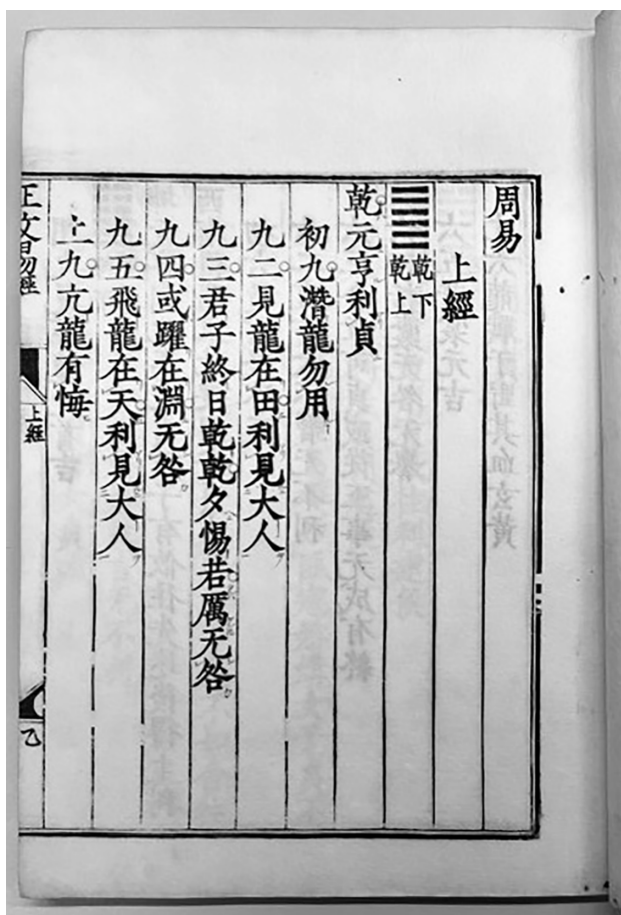 周易
上經
乾下
乾上
乾元亨利貞
初九潛龍勿用
九二見龍在田利見大人
九三君子終日乾乾夕惕若厲无咎
九四或躍在淵无咎
九五飛龍在天利見大人
上九亢龍有悔
上經